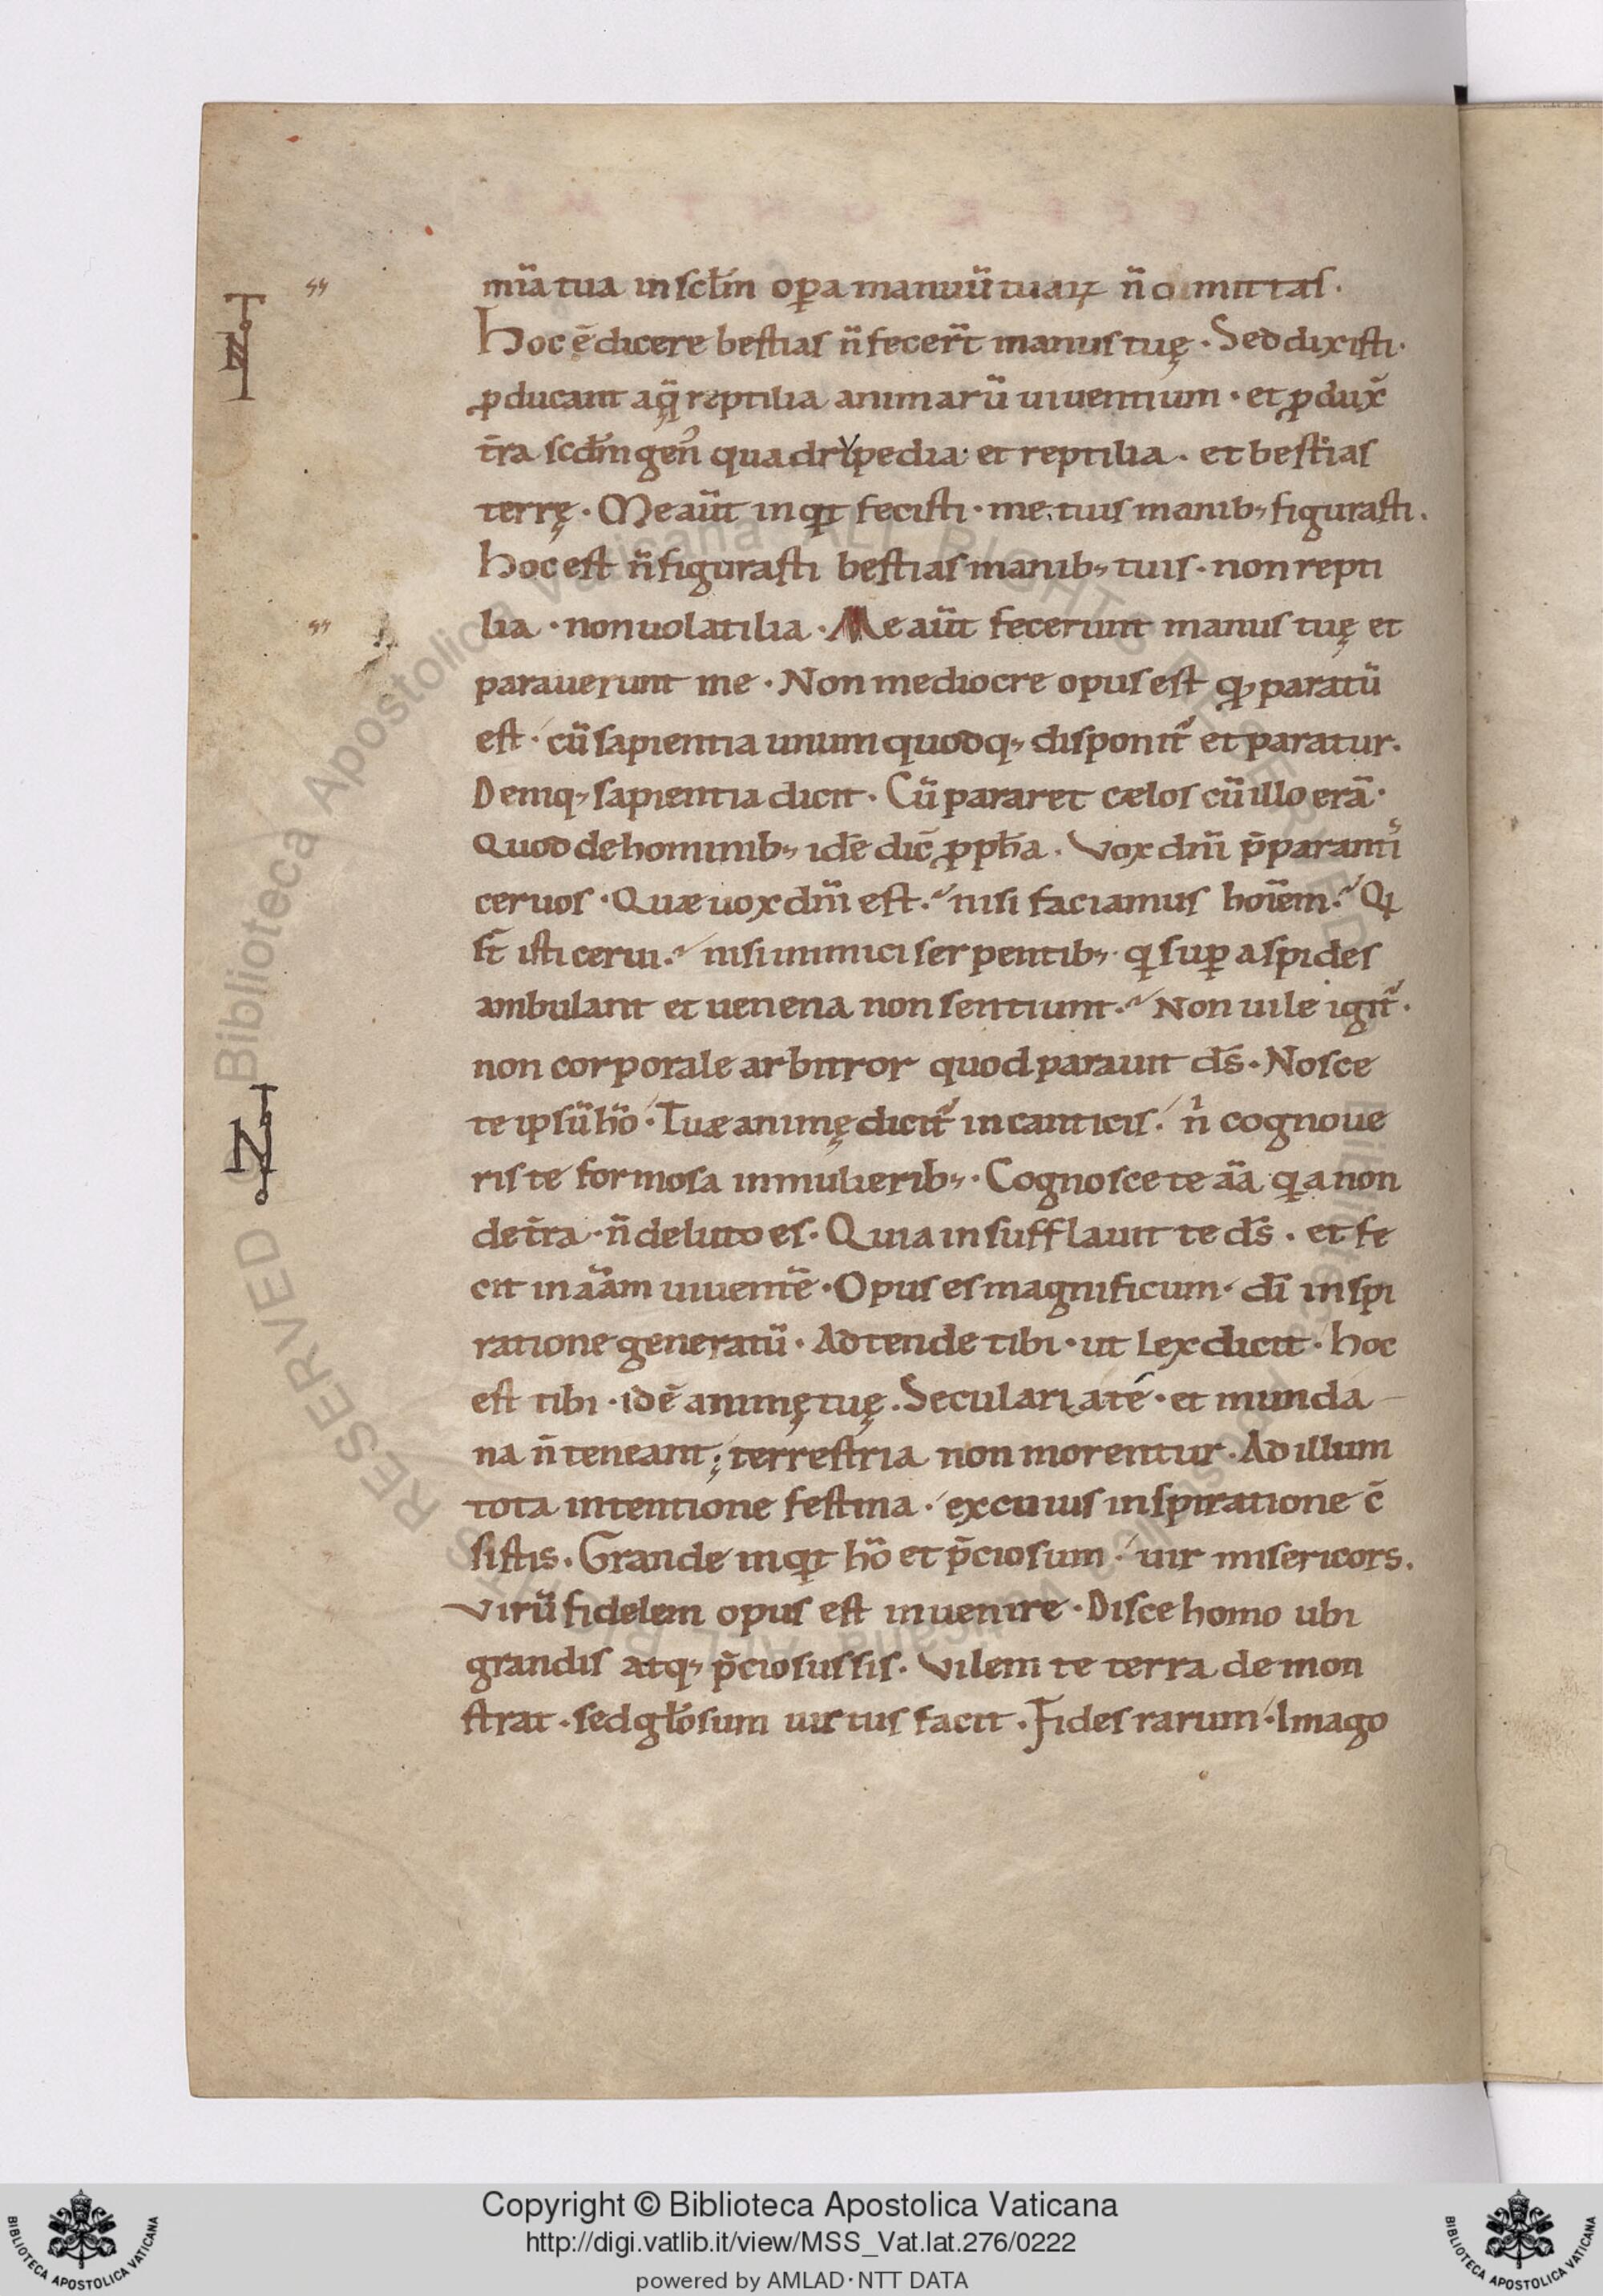 mi͞a tua in sct͞m oꝑa manuu͞ tuaꝝ n͞ omittas.
Hoc e͞ dicere bestias n͞ fecer͞t manus tuę. Sed dixisti.
ꝓducant aq͞ reptilia animaru͞ uiuentium. et ꝓdux͞
t͞ra scd͞m gen᾽ quadrYpedia. et reptilia. et bestias
terrę. Me au͞t inqꝫt fecisti. me tuis manibꝫ figurasti.
hoc est n͞ figurasti bestias manibꝫ tuis. non repti
lia. non uolatilia. Me au͞t fecerunt manus tuę et
parauerunt me. Non mediocre opus est qꝫ paratu͞
est. cu͞ sapientia unum quodqꝫ disponit᾽ et paratur.
Deniqꝫ sapientia dicit. Cu͞ pararet cælos cu͞ illo era͞.
Quod de hominibꝫ ide͞ dic͞ ꝓph͞a. Vox dn͞i p͞parantis
ceruos. Quæ uox dn͞i est? nisi faciamus hoi͞em? Qi
s͞t isti cerui? nisi inimici serpentibꝫ. qi suꝑ aspides
ambulant et uenena non sentiunt? Non uile igit᾽.
non corporale arbitror quod parauit d͞s. Nosce
te ipsu͞ ho͞. Tuæ animę dicit᾽ in canticis. nⁱ cognoue
ris te formosa in mulieribꝫ. Cognosce te a͞a qia non
de t͞ra. n͞ de luto es. Quia insufflauit te d͞s. et fe
cit in a͞am uiuente͞. Opus es magnificum. d͞i inspi
ratione generatu͞. Adtende tibi. ut Lex dicit. hoc
est tibi. ide͞ animę tuę. Seculari a te᾽. et munda
na n͞ teneant; terrestria non morentur. Ad illum
tota intentione festina. ex cuius inspiratione c͞
sistis. Grande inqꝫt ho͞ et p͞ciosum. uir misericors.
Viru͞ fidelem opus est inuenire. Disce homo ubi
grandis atqꝫ p͞ciosus sis. Vilem te terra demon
strat. sed gl͞osum uirtus facit. Fides rarum. Imago
Copyright © Biblioteca Apostolica Vaticana
http://digi.vatlib.it/view/MSS_Vat.lat.276/0222
powered by AMLAD·NTT DATA